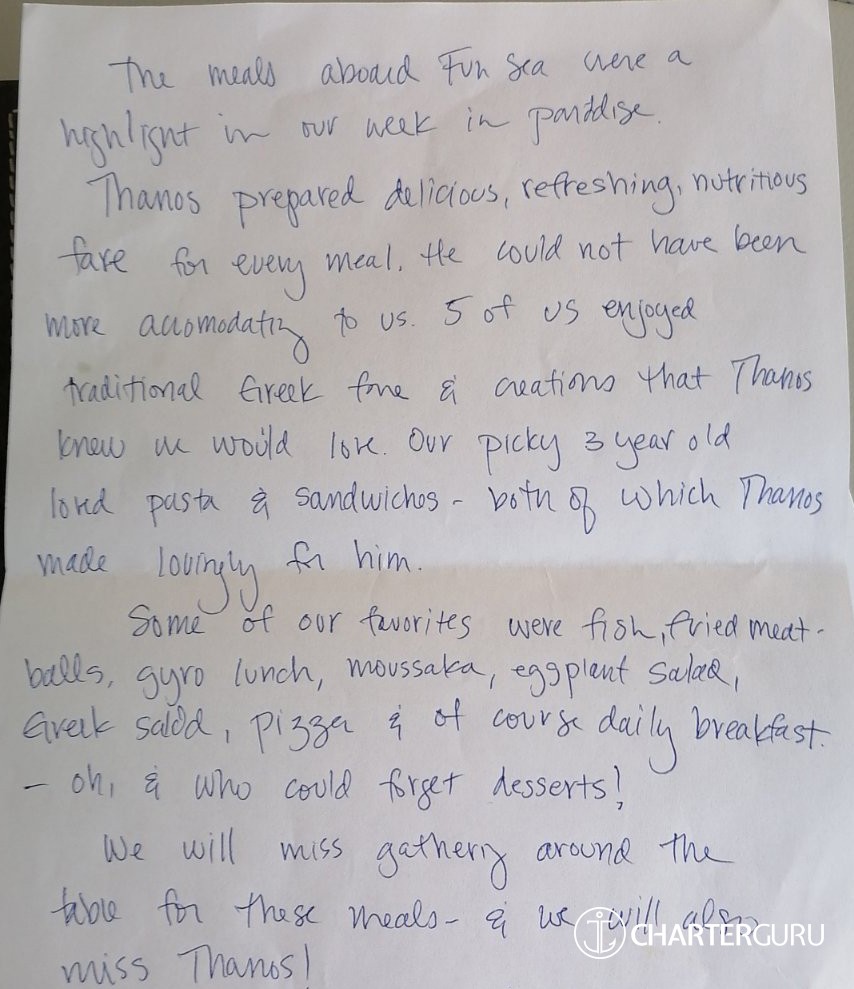 The meals aboard Fun Sea were a
highlight in our week in paradise.
Thanos prepared delicious, refreshing, nutritious
fare for every meal. He could not have been
more accomodating to us. 5 of us enjoyed
traditional Greek fare & creations that Thanos
knew we would love. Our picky 3 year old
loved pasta & sandwiches - both of which Thanos
made lovingly for him.
Some of our favorites were fish, fried meat-
balls, gyro lunch, moussaka, eggplant salad,
Greek salad, pizza & of course daily breakfast.
- oh, & who could forget desserts!
We will miss gathering around the
table for these meals - & we will also
miss Thanos!
CHARTERGURU